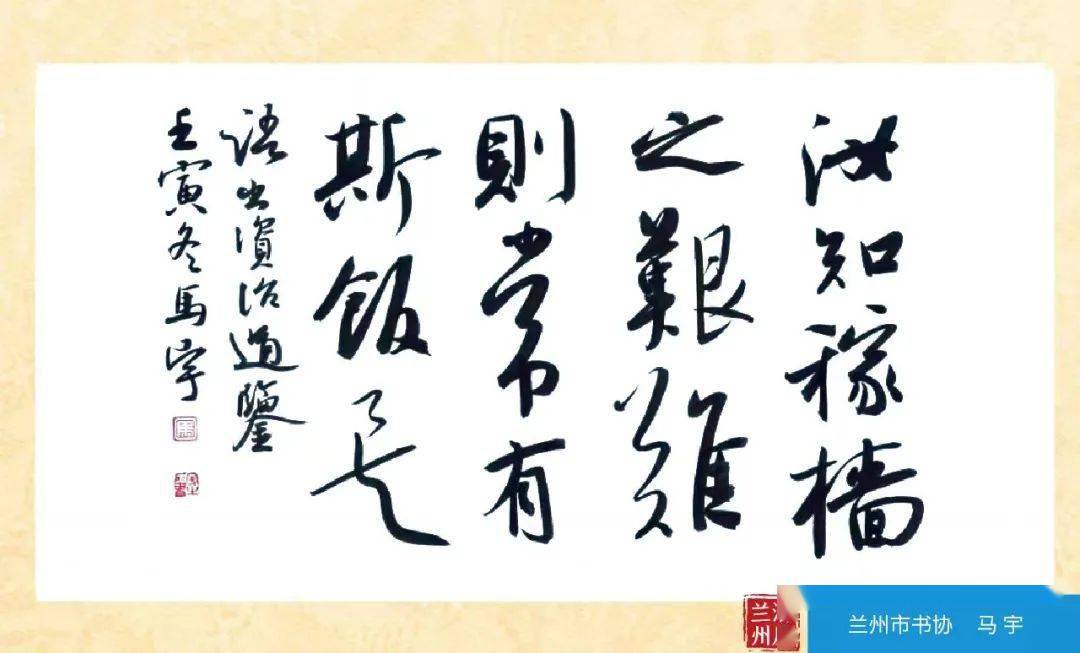 汝知稼檣
之艱難
則常有
斯飯矣
語出資治通鑒
壬寅冬馬宇
兰州
兰州市书协 马宇